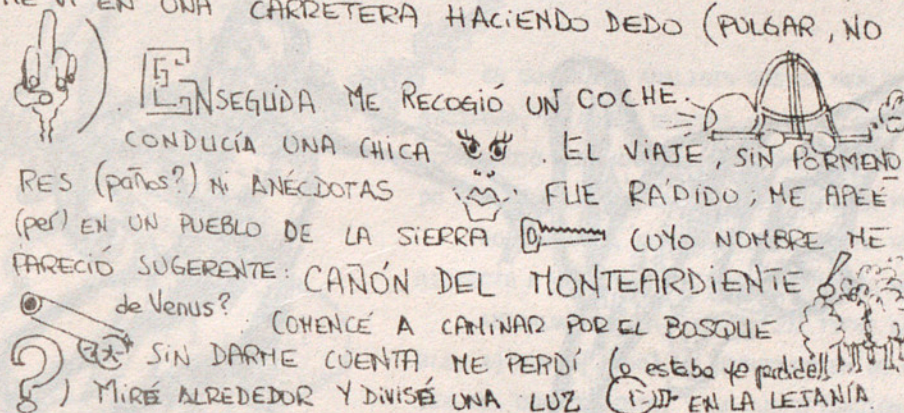 ME VI EN UNA CARRETERA HACIENDO DEDO (PULGAR, NO
). ENSEGUIDA ME RECOGIÓ UN COCHE.
CONDUCÍA UNA CHICA . EL VIAJE, SIN PORMENO
RES (paños?) NI ANÉCDOTAS FUE RÁPIDO; ME APEÉ
(per) EN UN PUEBLO DE LA SIERRA CUYO NOMBRE ME
PARECIÓ SUGERENTE: CAÑÓN DEL MONTEARDIENTE
de Venus?
COMENCÉ A CAMINAR POR EL BOSQUE
SIN DARME CUENTA ME PERDÍ (o estaba yo
?) MIRÉ ALREDEDOR Y DIVISÉ UNA LUZ EN LA LEJANÍA.